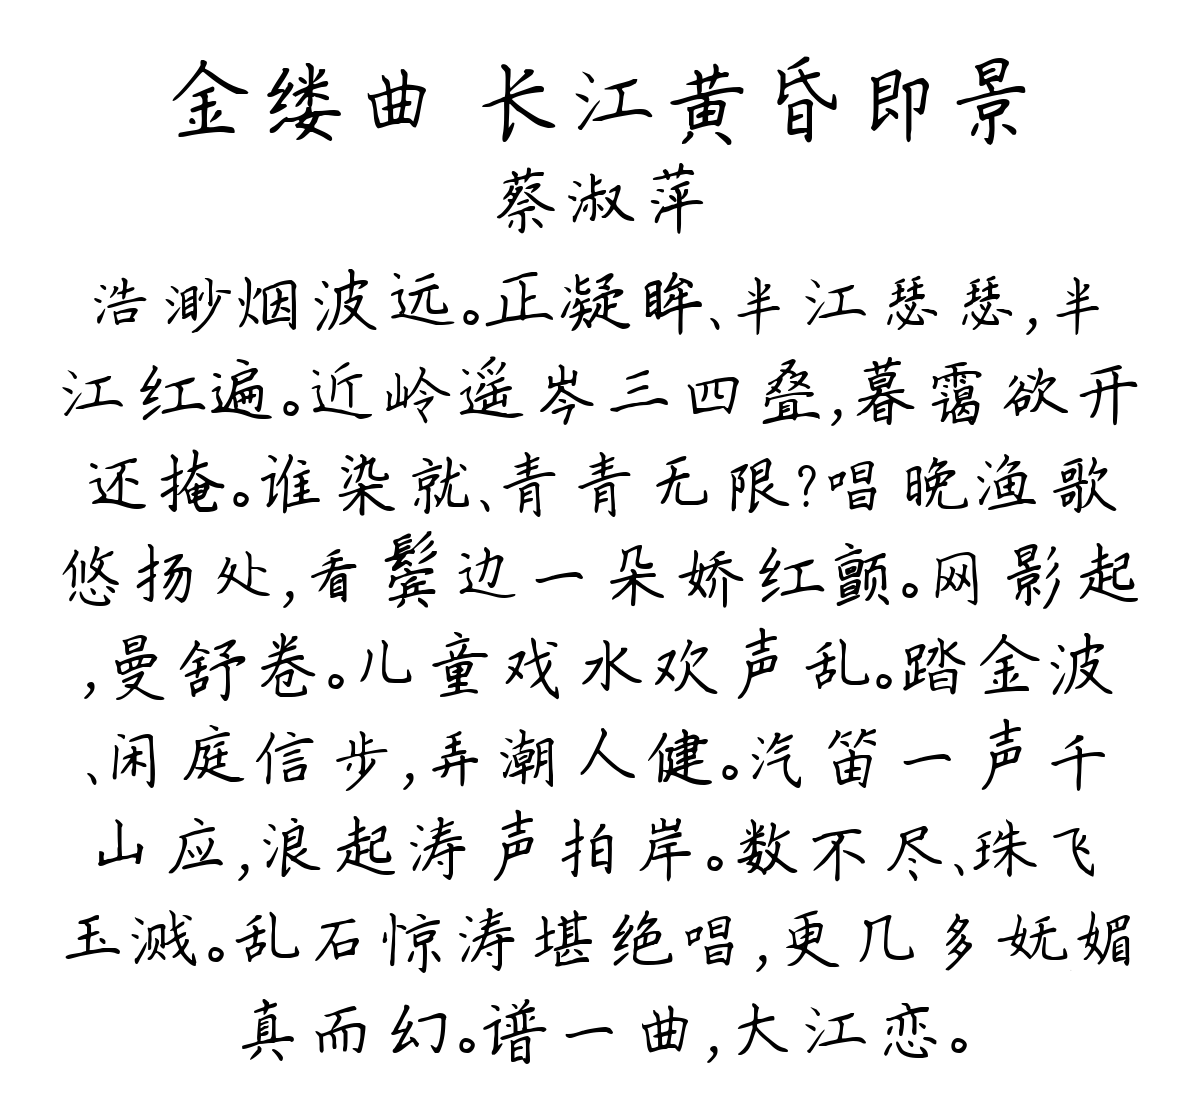 金缕曲 长江黄昏即景
蔡淑萍
浩渺烟波远。正凝眸、半江瑟瑟,半
江红遍。近岭遥岑三四叠,暮霭欲开
还掩。谁染就、青青无限?唱晚渔歌
悠扬处,看鬓边一朵娇红颤。网影起
,曼舒卷。儿童戏水欢声乱。踏金波
、闲庭信步,弄潮人健。汽笛一声千
山应,浪起涛声拍岸。数不尽、珠飞
玉溅。乱石惊涛堪绝唱,更几多妩媚
真而幻。谱一曲,大江恋。